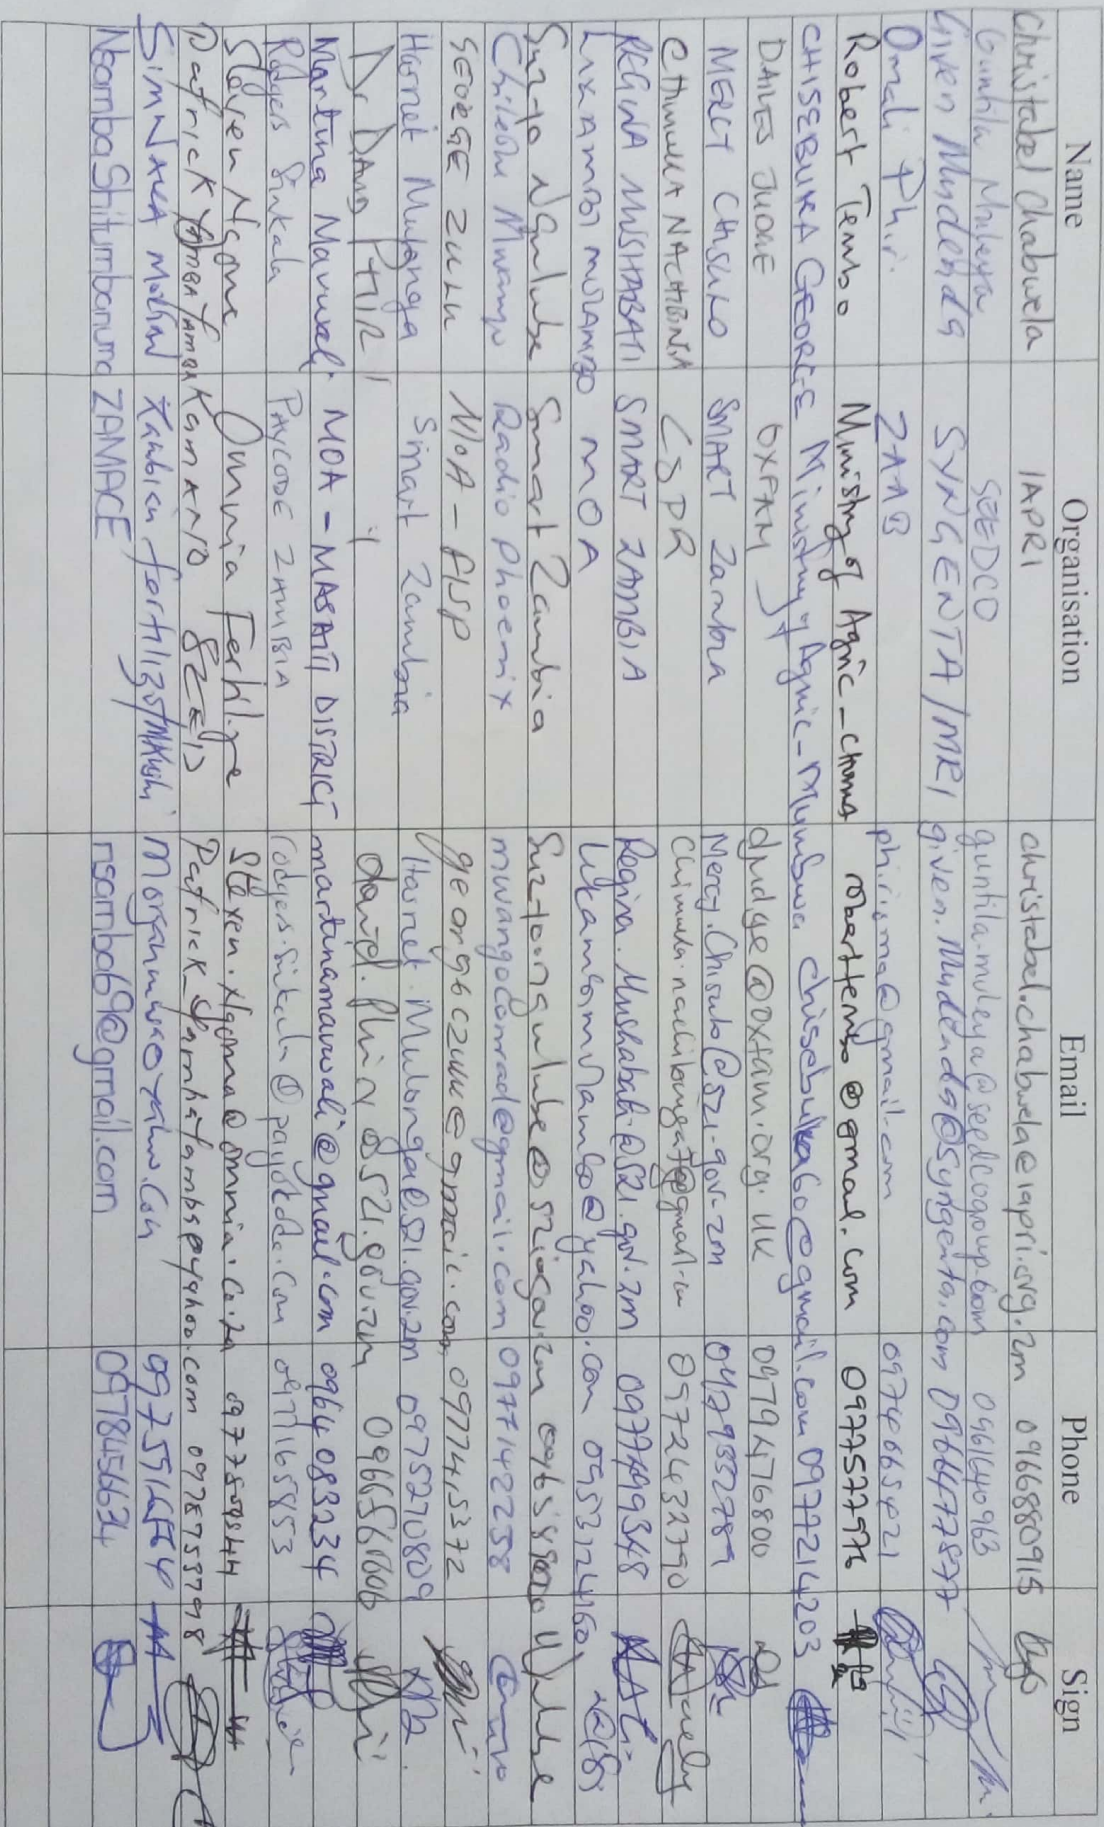 Name Organisation Email Phone Sign
Christabel Chabwela IAPRI christabel.chabwela@iapri.org.zm 0966880915
Guntila Muleya SEEDCO guntila.muleya@seedcogroup.com 0961640963
Given Mudenda SYNGENTA/MRI given.Mudenda@Syngenta.com 0966477877
Omali Phiri ZAAB phirioma@gmail.com 0974665421
Robert Tembo Ministry of Agric - Choma roberttembo@gmail.com 0977577576
CHISEBUKA GEORGE Ministry of Agric - Mumbwa chisebuka60@gmail.com 0977214203
DAILES JUDGE OXFAM djudge@oxfam.org.uk 0979476800
MERCY CHISUKO SMART Zambia Mercy.Chisuko@szi.gov.zm
CHIMUKA NACHIBINGA CSPR 0572432790
REGINA MUSHABATI SMART ZAMBIA Regina.Mushabati@szi.gov.zm 0977499348
LIKAMBI MULAMBO MOA
Suzyo Ngulube Smart Zambia
Chileshe Mwango Radio Phoenix mwangoconrad@gmail.com 0977422258
GEORGE ZULU MOA - FISP georgeczulu@gmail.com 0977415372
Harriet Mulenga Smart Zambia 0975270809
Dr DAVID PHIRI 0966566606
Martina Mavwali MOA - MASAITI DISTRICT martinamavwali@gmail.com 0964083234
Rodgers Sikala PAYCODE ZAMBIA rodgers.sikala@paycode.com 0971165853
Steven Ngoma Omnia Fertilizer steven.Ngoma@omnia.co.za
Patrick YAMBAYAMBA KAMANO SEED 0978755798
Zambian fertilizer/Mkushi
Nsamba Shitumbanuma ZAMACE nsamba69@gmail.com 0978456634